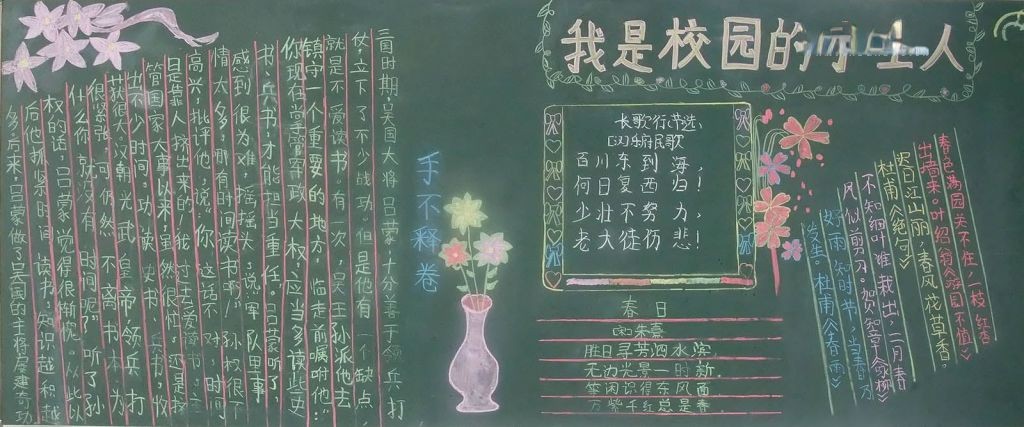 我是校园的
三国时期,吴国大将吕蒙十分善于领兵打
仗,立下了不少战功。但是他有一个缺点
就是不爱读书。有一次,吴王孙派他去
镇守一个重要的地方。临走前嘱咐他:
你现在尚掌管军政大权,应当多读些史
书、兵书,才能担当重任。吕蒙听了,
感到很为难,摇摇头说:军队里事
情太多,哪有时间读书啊!孙权很不
高兴,批评他说:“你这话不对,时间
是靠人挤出来的。我过去爱读书,主
管国家大事以来,虽然很忙,还是挤
出不少时间,功读史书、兵书,收
获很大。汉朝光武皇帝领兵打
很紧张,可仍然不离书本,为
什么你就没有时间呢?”听了孙
权的话,吕蒙觉得很惭愧。从此以
后他抓紧时间读书,知识越积越
多后来,吕蒙做了吴国的主将屡建奇功
手不释卷
长歌行(节选)
(汉)乐府民歌
百川东到海,
何日复西归!
少壮不努力,
老大徒伤悲!
春日
(宋)朱熹
胜日寻芳泗水滨,
无边光景一时新。
等闲识得东风面,
万紫千红总是春。
春色满园关不住,一枝红杏
出墙来。叶绍翁《游园不值》
迟日江山丽,春风花草香。
杜甫《绝句》
不知细叶谁裁出,二月春
风似剪刀。贺知章《咏柳》
好雨知时节,当春乃
发生。杜甫《春雨》